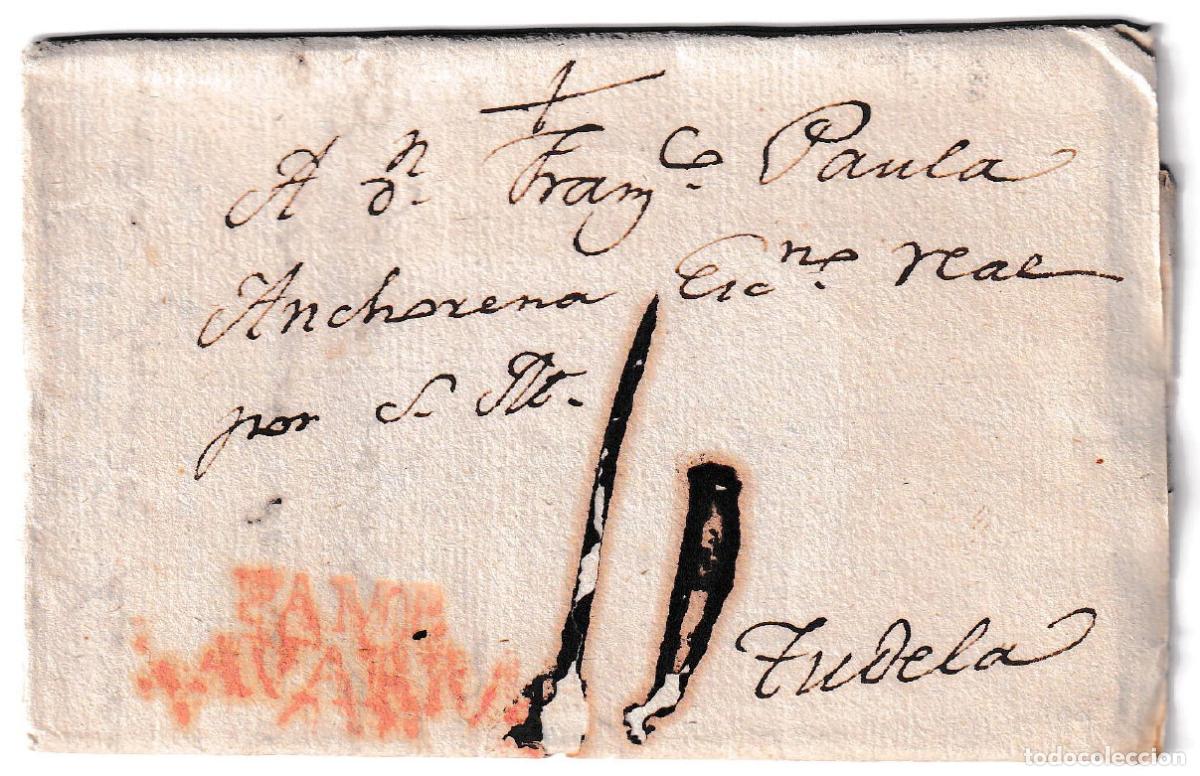 +
A Dn. Franco. Paula
Anchorena Escno. real
por S. M.
Tudela
PAMP
NAVARRA
todocoleccion